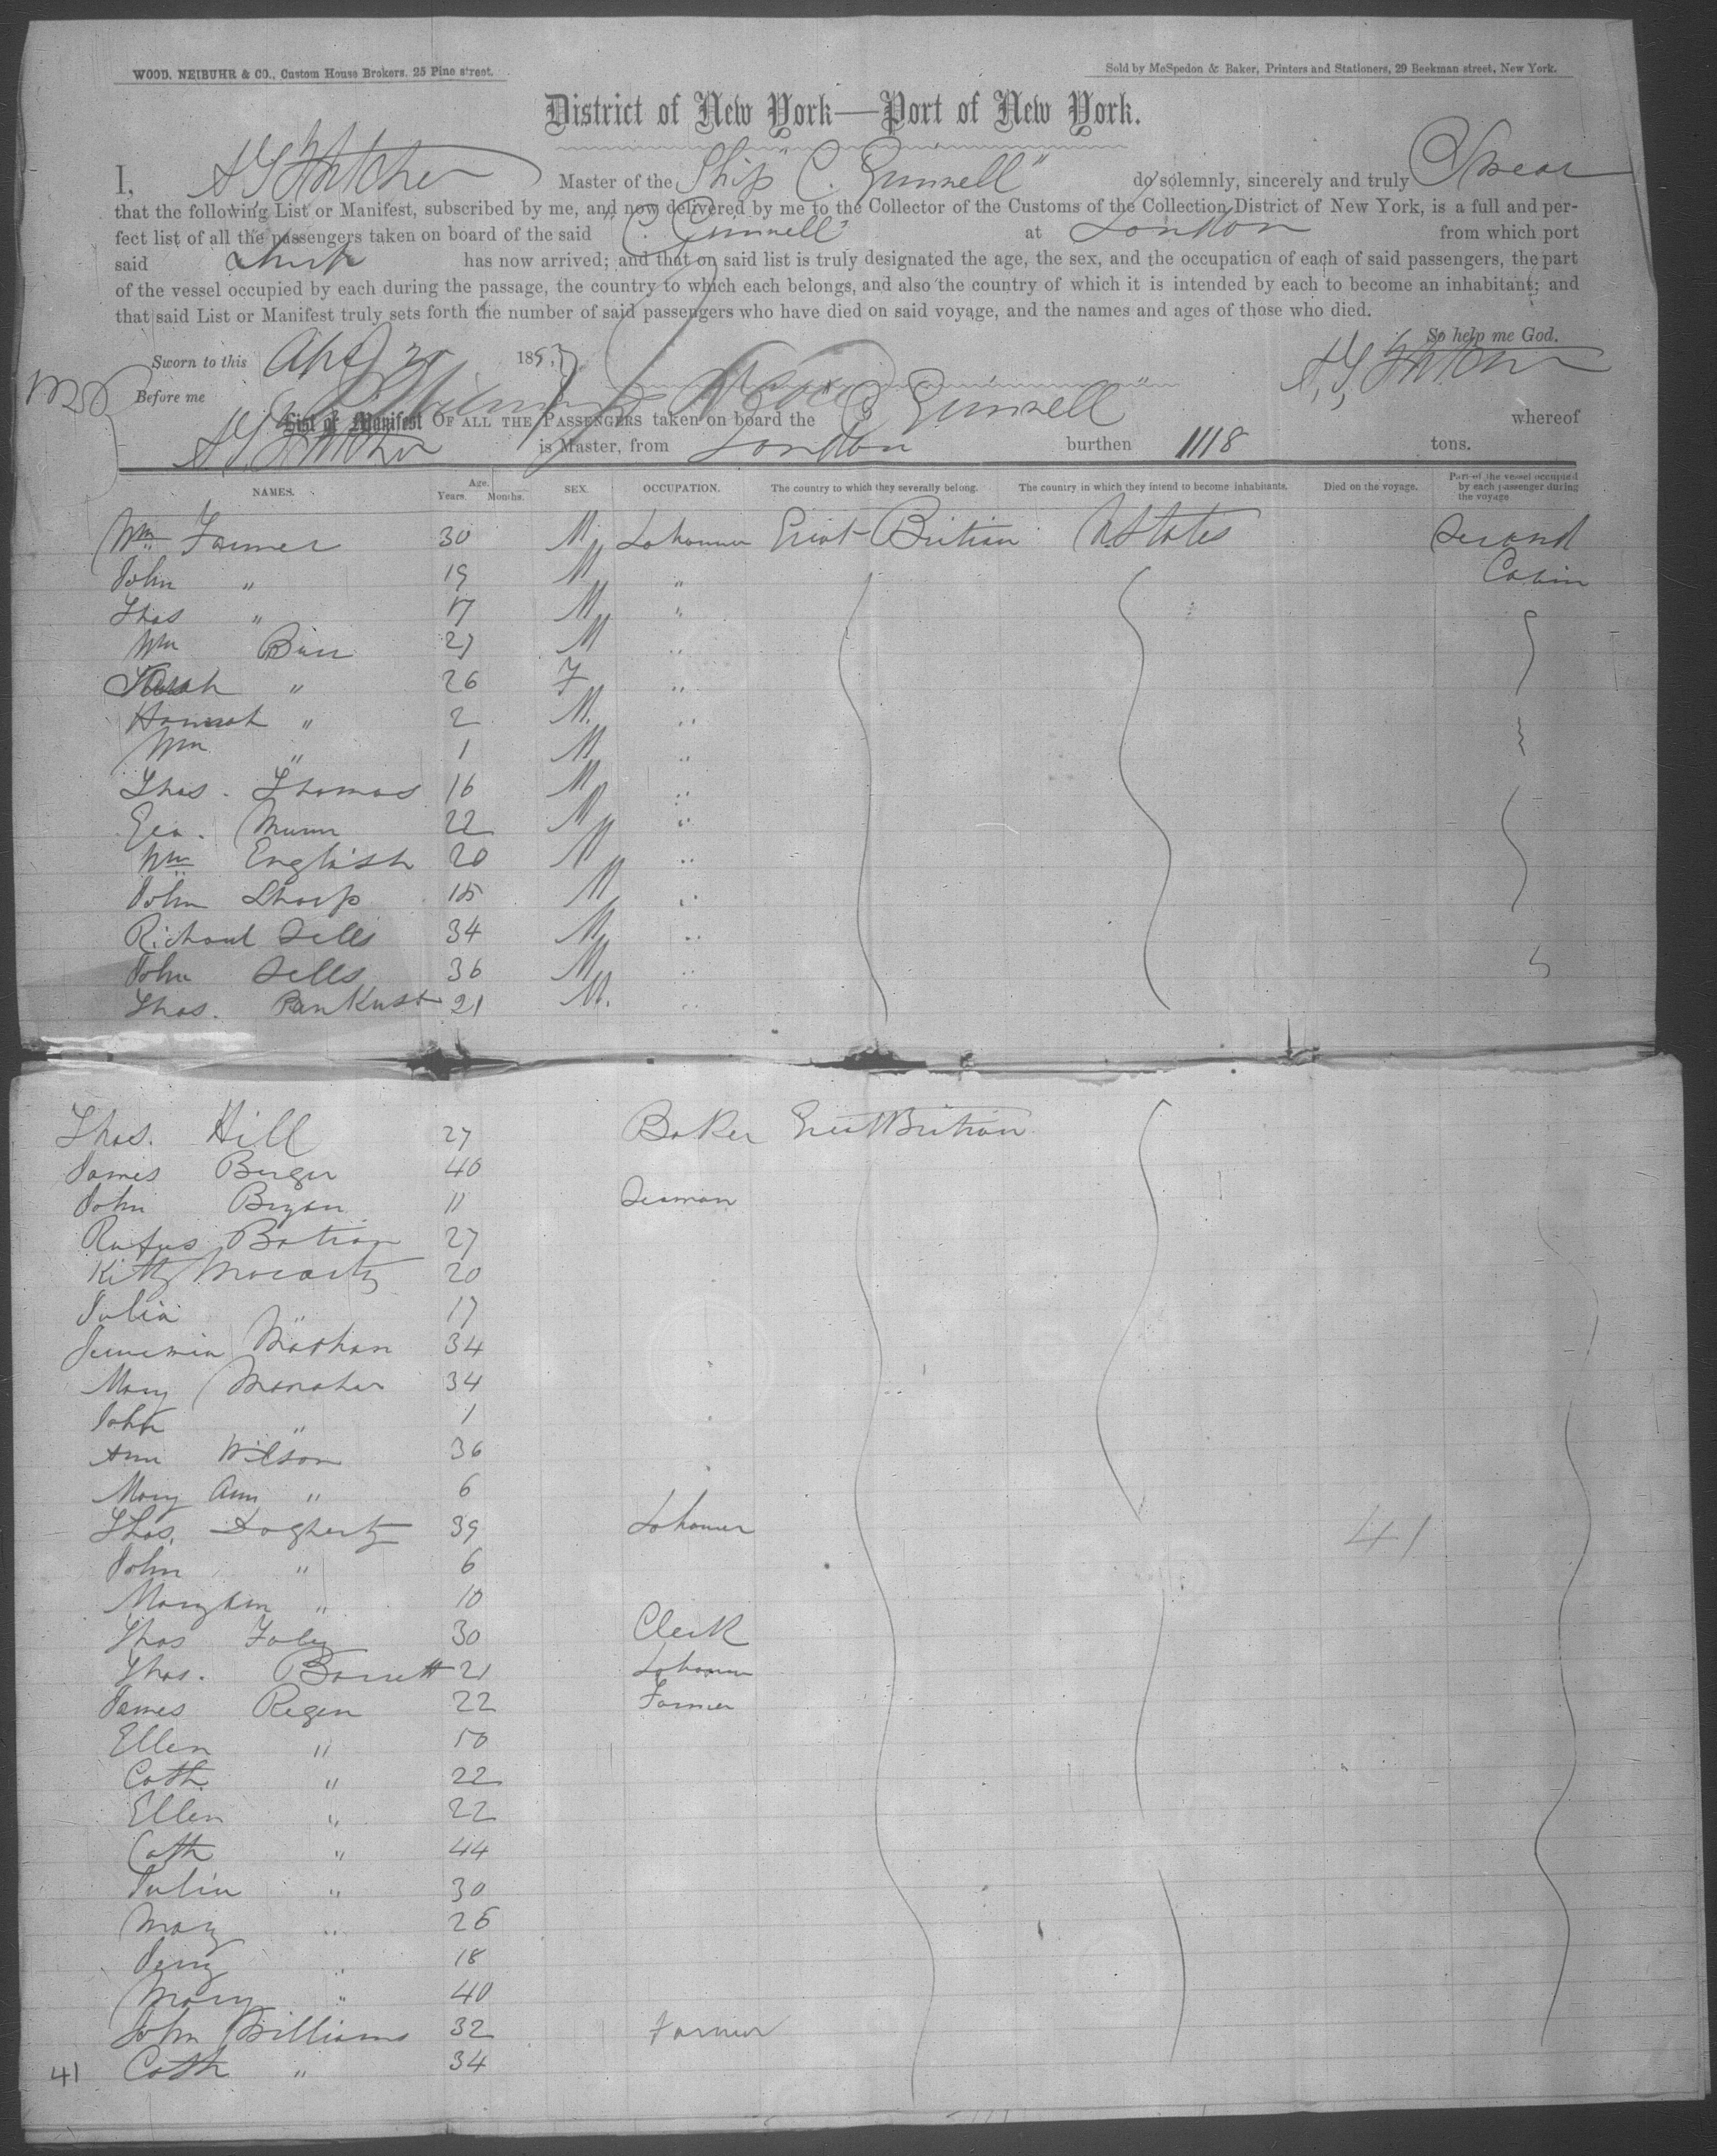 WOOD, NEIBUHR & CO., Custom House Brokers. 25 Pine street.
Sold by McSpedon & Baker, Printers and Stationers, 29 Beekman street, New York.
District of New York—Port of New York.
I, Master of the Ship "C. Grinnell" do solemnly, sincerely and truly Swear
that the following List or Manifest, subscribed by me, and now delivered by me to the Collector of the Customs of the Collection District of New York, is a full and per-
fect list of all the passengers taken on board of the said "C. Grinnell" at London from which port
said Ship has now arrived; and that on said list is truly designated the age, the sex, and the occupation of each of said passengers, the part
of the vessel occupied by each during the passage, the country to which each belongs, and also the country of which it is intended by each to become an inhabitant; and
that said List or Manifest truly sets forth the number of said passengers who have died on said voyage, and the names and ages of those who died.
So help me God.
Sworn to this Apl 185
Before me
List or Manifest OF ALL THE PASSENGERS taken on board the C Grinnell whereof
is Master, from London burthen 1118 tons.
NAMES. Age. Years. Months. SEX. OCCUPATION. The country to which they severally belong. The country in which they intend to become inhabitants. Died on the voyage. Part of the vessel occupied by each passenger during the voyage
Wm Farmer 30 M Labourer Great Britian U States Second
John " 19 M " Cabin
Thos " 17 M "
Wm 27 M "
Sarah " 26 F "
Hannah " 2 M "
Wm " 1 M "
Thos. Thomas 16 M "
Geo. Munn 22 M "
Wm English 20 M "
John Sharp 18 M "
Richard Sells 34 M "
John Sells 36 M "
Thos. Pankust 21 M. "
Thos. Hill 27 Baker Great Britian
James Berger 40
John Bryan 11 Seaman
Rufus 27
Kitty Mocarty 20
Julia " 17
Mashan 34
Mary Manaher 34
John " 1
Ann Wilson 36
Mary Ann " 6
Thos. Dogherty 39 Labourer 41
John " 6
Maryann " 10
Thos Foley 30 Clerk
Thos. Barrett 21 Labourer
James Regen 22 Farmer
Ellen " 50
Cath. " 22
Ellen " 22
Cath " 44
Julia " 30
Mary " 26
" 18
Mary " 40
John Williams 32 Farmer
41 Cath " 34